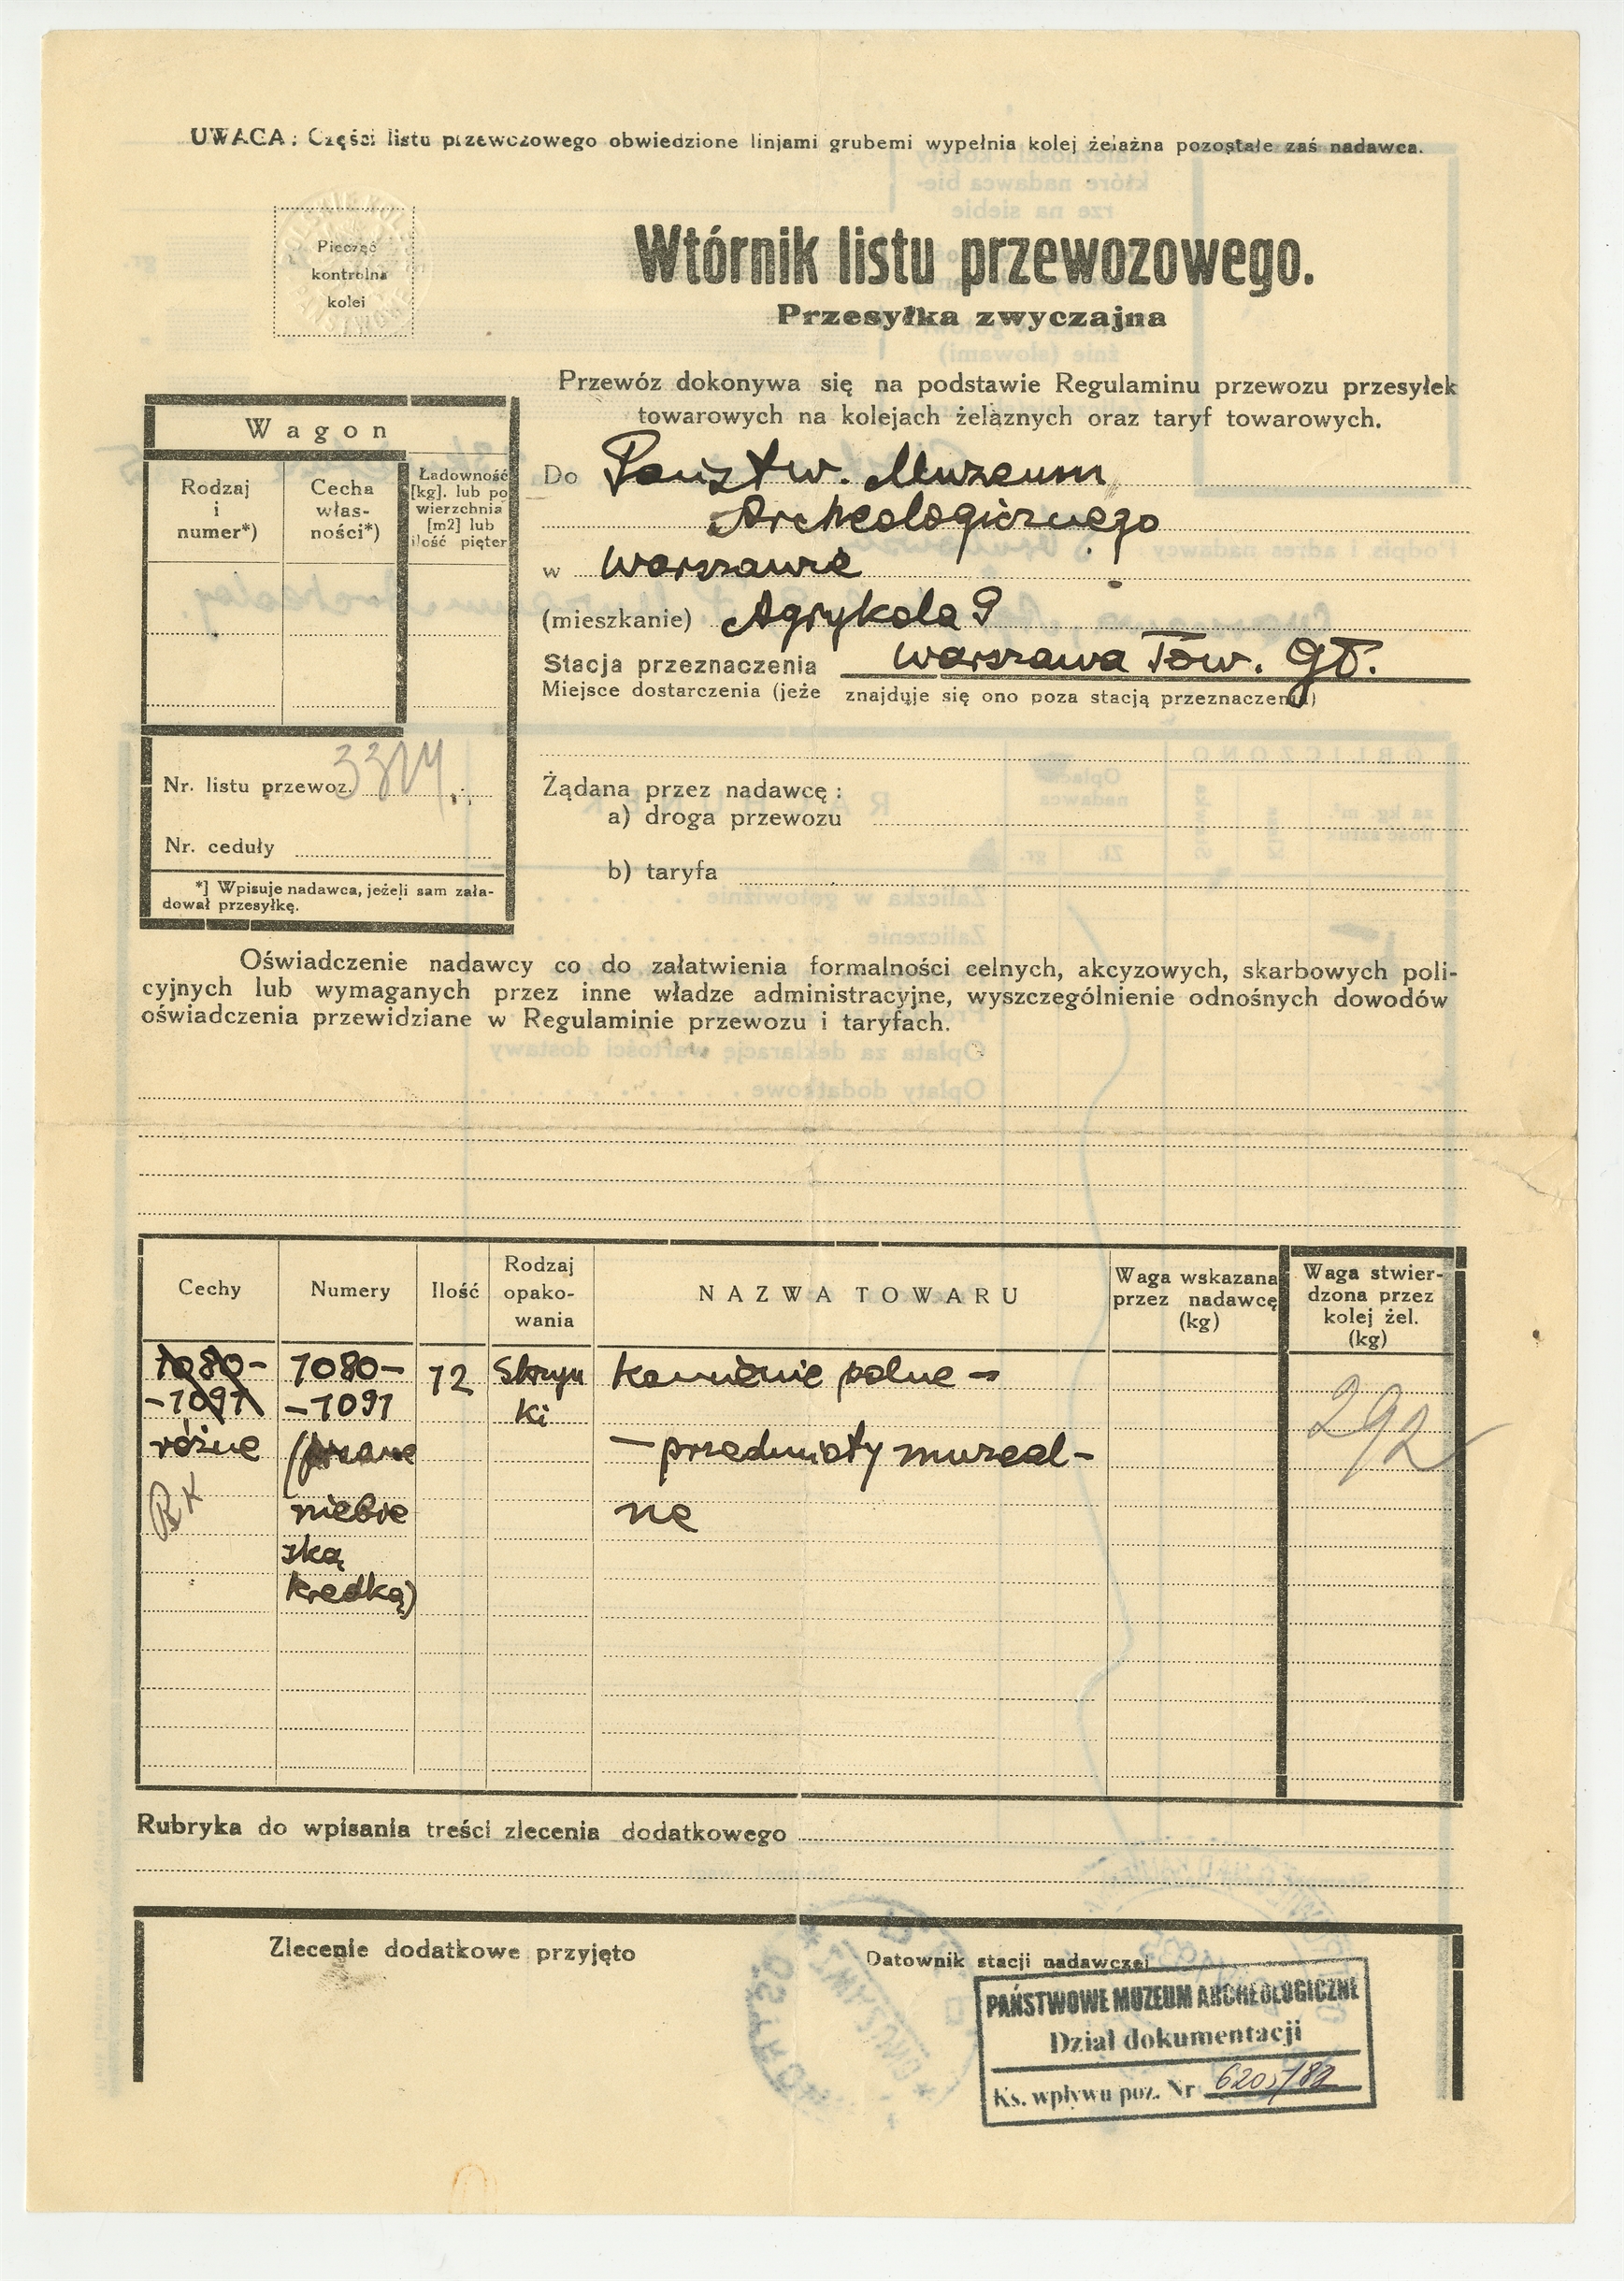 UWAGA: Części listu przewozowego obwiedzione linjami grubemi wypełnia kolej żelażna pozostałe zaś nadawca.
Pieczęć
kontrolna
kolei
Wtórnik listu przewozowego.
Przesyłka zwyczajna
Przewóz dokonywa się na podstawie Regulaminu przewozu przesyłek
towarowych na kolejach żelaznych oraz taryf towarowych.
Wagon
Rodzaj
i
numer*)
Cecha
włas-
ności*)
Ładowność
[kg]. lub po
wierzchnia
[m2] lub
ilość pięter
Do Państw. Muzeum
Archeologicznego
w Warszawie
(mieszkanie) Agrykola 9
Stacja przeznaczenia Warszawa Tow. Gł.
Miejsce dostarczenia (jeże znajduje się ono poza stacją przeznaczenia)
Nr. listu przewoz.
Nr. ceduły
*] Wpisuje nadawca, jeżeli sam zała-
dował przesyłkę.
Żądana przez nadawcę:
a) droga przewozu
b) taryfa
Oświadczenie nadawcy co do załatwienia formalności celnych, akcyzowych, skarbowych poli-
cyjnych lub wymaganych przez inne władze administracyjne, wyszczególnienie odnośnych dowodów
oświadczenia przewidziane w Regulaminie przewozu i taryfach.
Cechy
Numery
Ilość
Rodzaj
opako-
wania
NAZWA TOWARU
Waga wskazana
przez nadawcę
(kg)
Waga stwier-
dzona przez
kolej żel.
(kg)
1080- 1080- 12 Skrzyn kamienie polne -
-1091 -1091 ki
różne (pisane - przedmioty muzeal- 292
RK niebie ne
ską
kredką)
Rubryka do wpisania treści zlecenia dodatkowego
Zlecenie dodatkowe przyjęto
Datownik stacji nadawczej
PAŃSTWOWE MUZEUM ARCHEOLOGICZNE
Dział dokumentacji
Ks. wpływu poz. Nr 6205/82